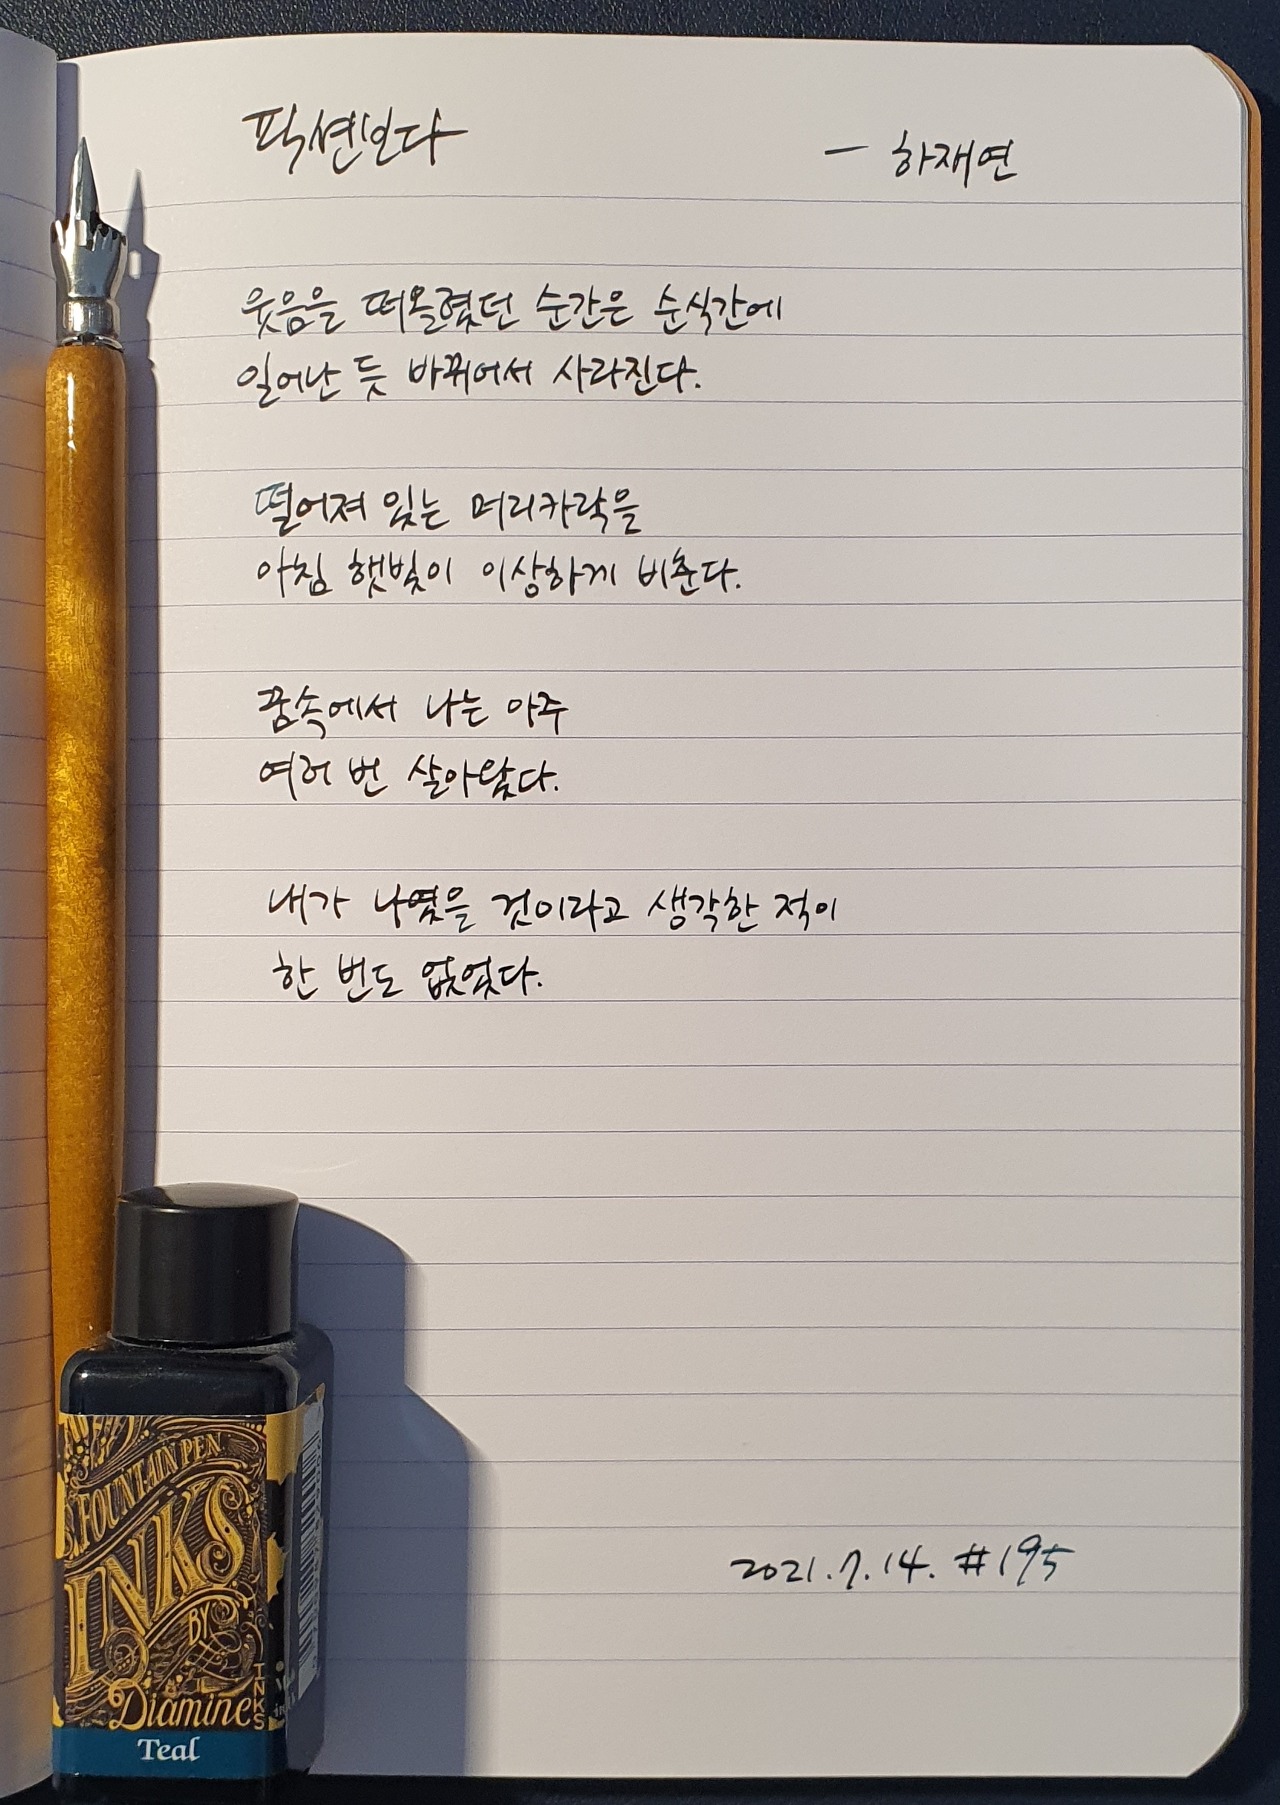 픽션보다
- 하재연
웃음을 떠올렸던 순간은 순식간에
일어난 듯 바뀌어서 사라진다.
떨어져 있는 머리카락을
아침 햇빛이 이상하게 비춘다.
꿈속에서 나는 아주
여러 번 살아왔다.
내가 나였을 것이라고 생각한 적이
한 번도 없었다.
2021.7.14. #195
FOUNTAIN PEN
INKS
BY
Diamine
INKS
Teal